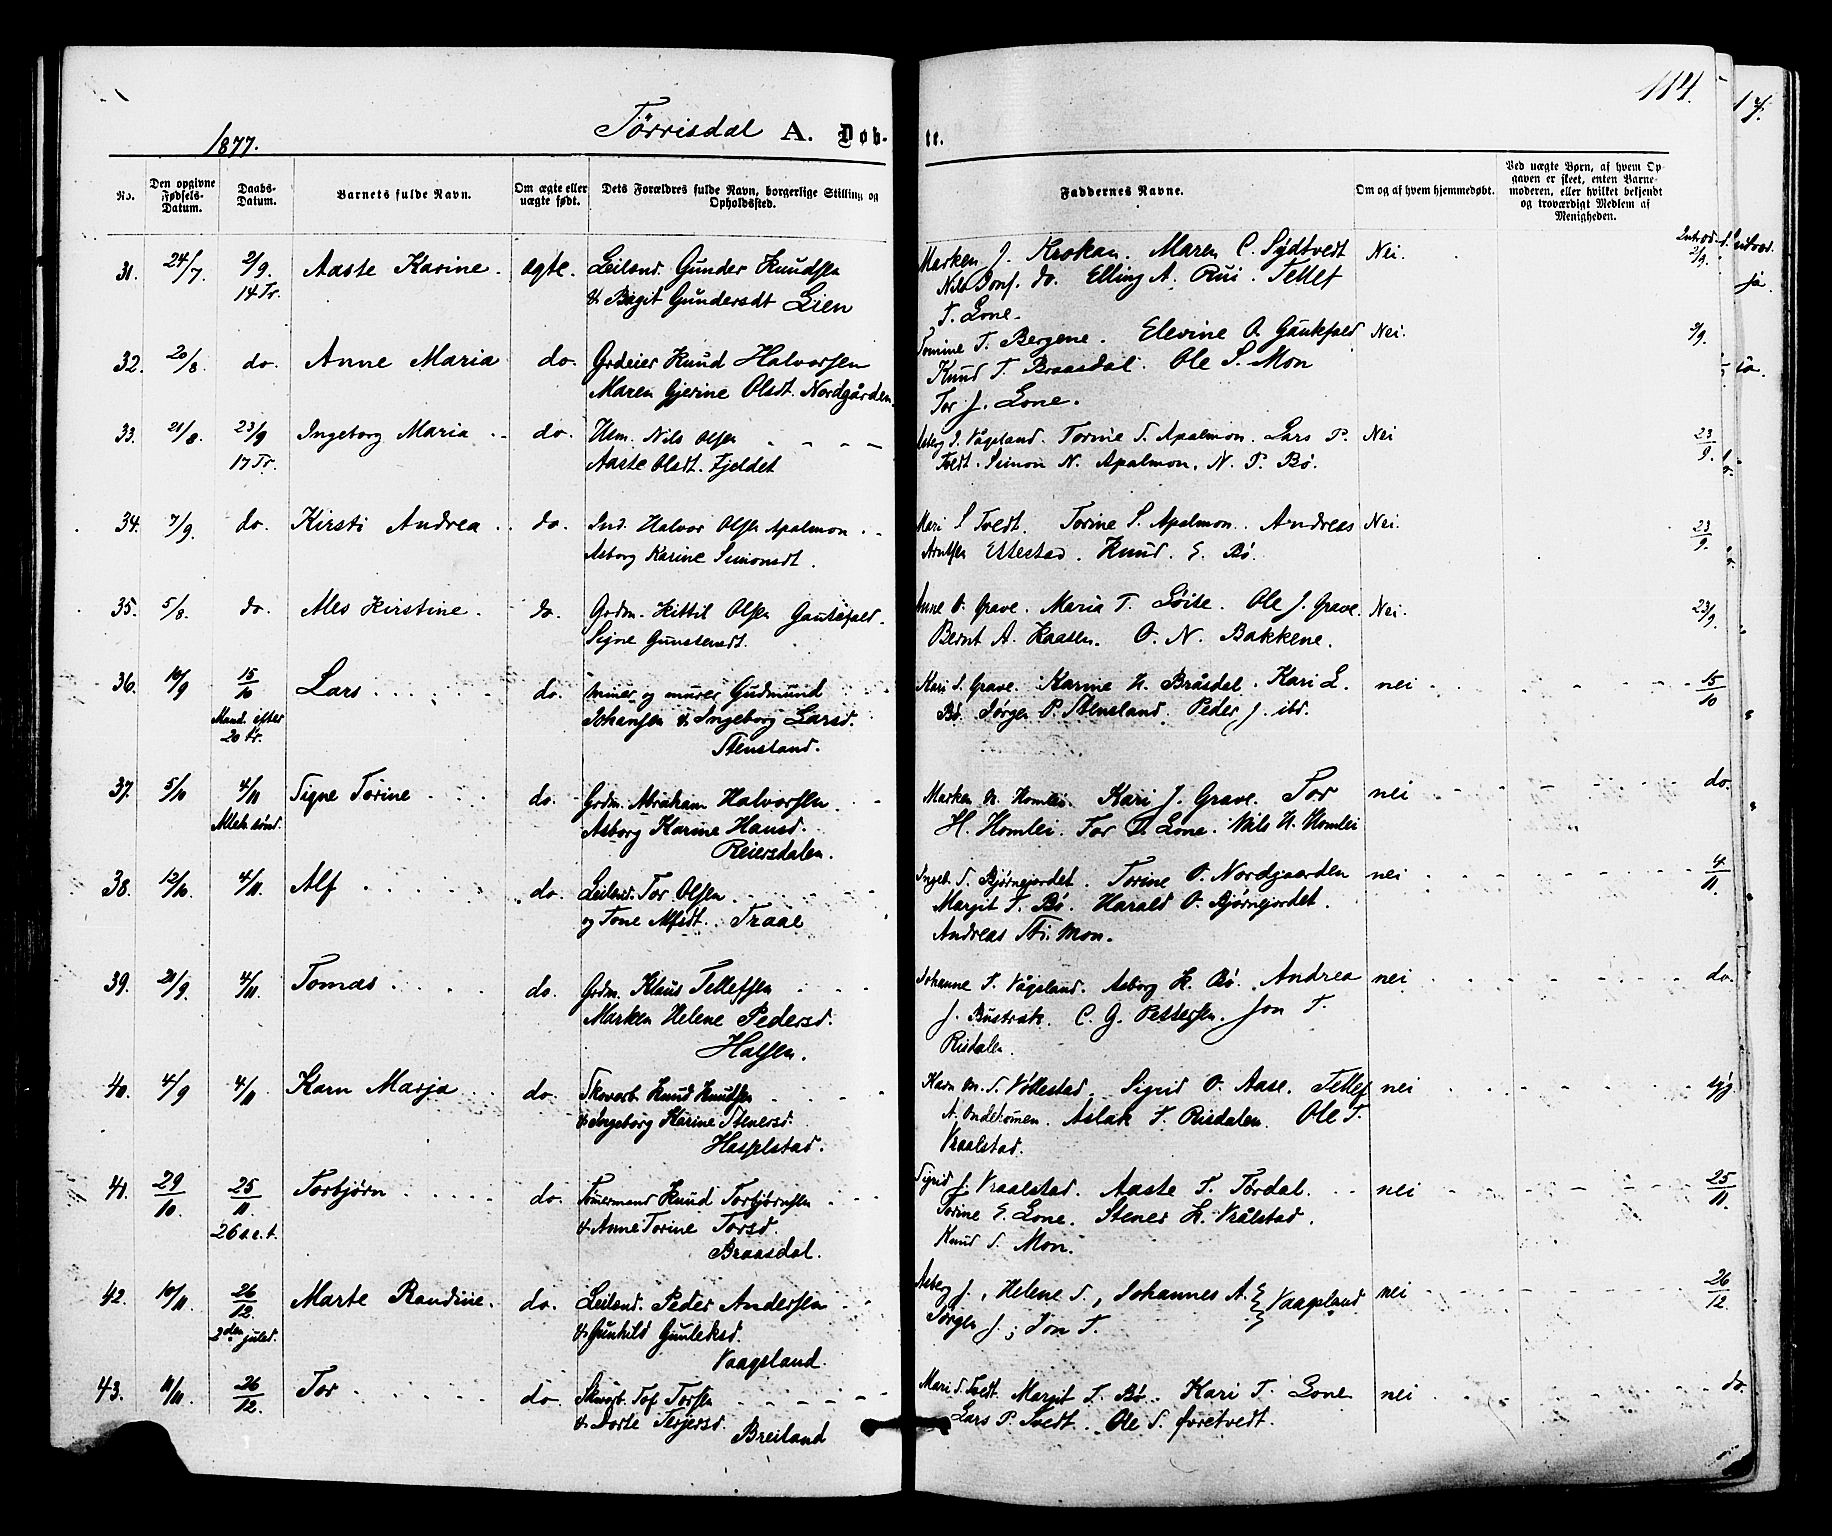 114.
1877.
Törrisdal A. Døb-
te.
No.
Den opgivne Fødsels-Datum.
Daabs-Datum.
Barnets fulde Navn.
Om ægte eller uægte født.
Dets Forældres fulde Navn, borgerlige Stilling og Opholdssted.
Faddernes Navne.
Om og af hvem hjemmedøbt.
Ved uægte Børn, af hvem Opgaven er skeet, enten Barnemoderen, eller hvilket bekjendt og troværdigt Medlem af Menigheden.
31. 24/7. 2/9. Aaste Karine. ægte. Leilend. Gunder Knudsen Marken J. Krokan. Maren C. Sydtvedt Nei. 2/9.
14 Tr. & Birgit Gundersdt Lien Nils Jons. do. Elling A. Rui. Tellef
T. Lone.
32. 20/8. do. Anne Maria do. Grdeier Knud Halvorsen Tomine T. Bergene. Elevine O. Gautefald Nei. 2/9.
Maren Gjerine Olsdt. Nordgården. Knud T. Braasdal. Ole S. Mon
Tor J. Lone.
33. 21/8. 23/9 Ingeborg Maria do. Hsm. Nils Olsen Asborg J. Vågsland. Torine S. Apalmon. Lars P. Nei 23/9.
17 Tr. Aaste Olsdt. Fjeldet Tvedt. Simon N. Apalmon. N. T. Bø.
34. 7/9. do. Kirsti Andrea do. Ind. Halvor Olsen Apalmon Mari S Tvedt. Torine S. Apalmon. Andreas Nei. 23/9.
Asborg Karine Simonsdt. Arntsen Ettestad. Knud. E. Bø.
35. 5/8. do. Ales Kirstine. do. Grdm. Kittil Olsen Gautefald. Anne O. Grave. Maria T. Löite. Ole J. Grave. Nei. 23/9.
Signe Gunstensdt. Bernt A. Kaasen. O. N. Bakkene.
36. 10/9 15/10 Lars. do. miner og murer Gudmund Kari S. Grave. Karine K. Bråsdal. Kari L. nei 15/10
Mand. efter Johansen & Ingeborg Larsd. Bø. Jörgen P. Stensland. Peder J. ibd.
20 Tr. Stensland.
37. 5/10 4/11 Signe Torine do. Grdm. Abraham Halvorsen Marken N. Homlei. Kari J. Grave. Tor nei do.
Alleh. sönd. Asborg Karine Hansd. H. Homlei. Tor T. Lone. Nils H. Homlei
Reiersdalen.
38. 12/10. 4/11. Alf do. Leilend. Tor Olsen Ingeb. S. Bjørnejordet. Torine O. Nordgaarden nei 4/11.
og Tone Alfsdt. Traae Margit T. Bø. Harald O. Bjørnejordet.
Andreas Mon.
39. 21/9. 4/11. Tomas do. Grdm. Klaus Tellefsen Johanne T. Vågsland. Asborg K. Bø. Andrea nei do.
Marken Helene Pedersd. J. Bustrak. C. G. Pettersen. Jon T.
Halsen. Risdalen.
40. 4/9 4/11 Karn Marja do. Skovarb. Knud Knudsen Karn M. S. Völlestad. Sigrid O. Aase. Tellef nei
& Ingeborg Karine Stenersd. A. Aslak T. Risdalen. Ole T.
Haspelstad. Vraalstad.
41. 29/10. 25/11. Torbjörn do. Tömermand Knud Torbjörnsen Sigrid J. Vraalstad. Aaste T. Tördal. nei 25/11.
26 s.e.t. & Anne Torine Torsd. Torine E. Lone. Stener K. Vrålstad.
Braasdal. Knud S. Mon.
42. 10/11. 26/12. Marte Randine. do. Leilend. Peder Andersen Asborg J., Helene S., Johannes A. Vaagsland nei 26/12
2den juled. & Gunhild Gunleksd. Jörgen J.; Jon T.
Vaagsland.
43. 11/11. 26/12. Tor do Skovarb. Tof Torsen Mari S. Tvedt. Margit T. Bø. Kari T. Lone nei do.
& Dorte Terjersd. Breiland Lars P. Tvedt. Ole S. Øvretvedt.